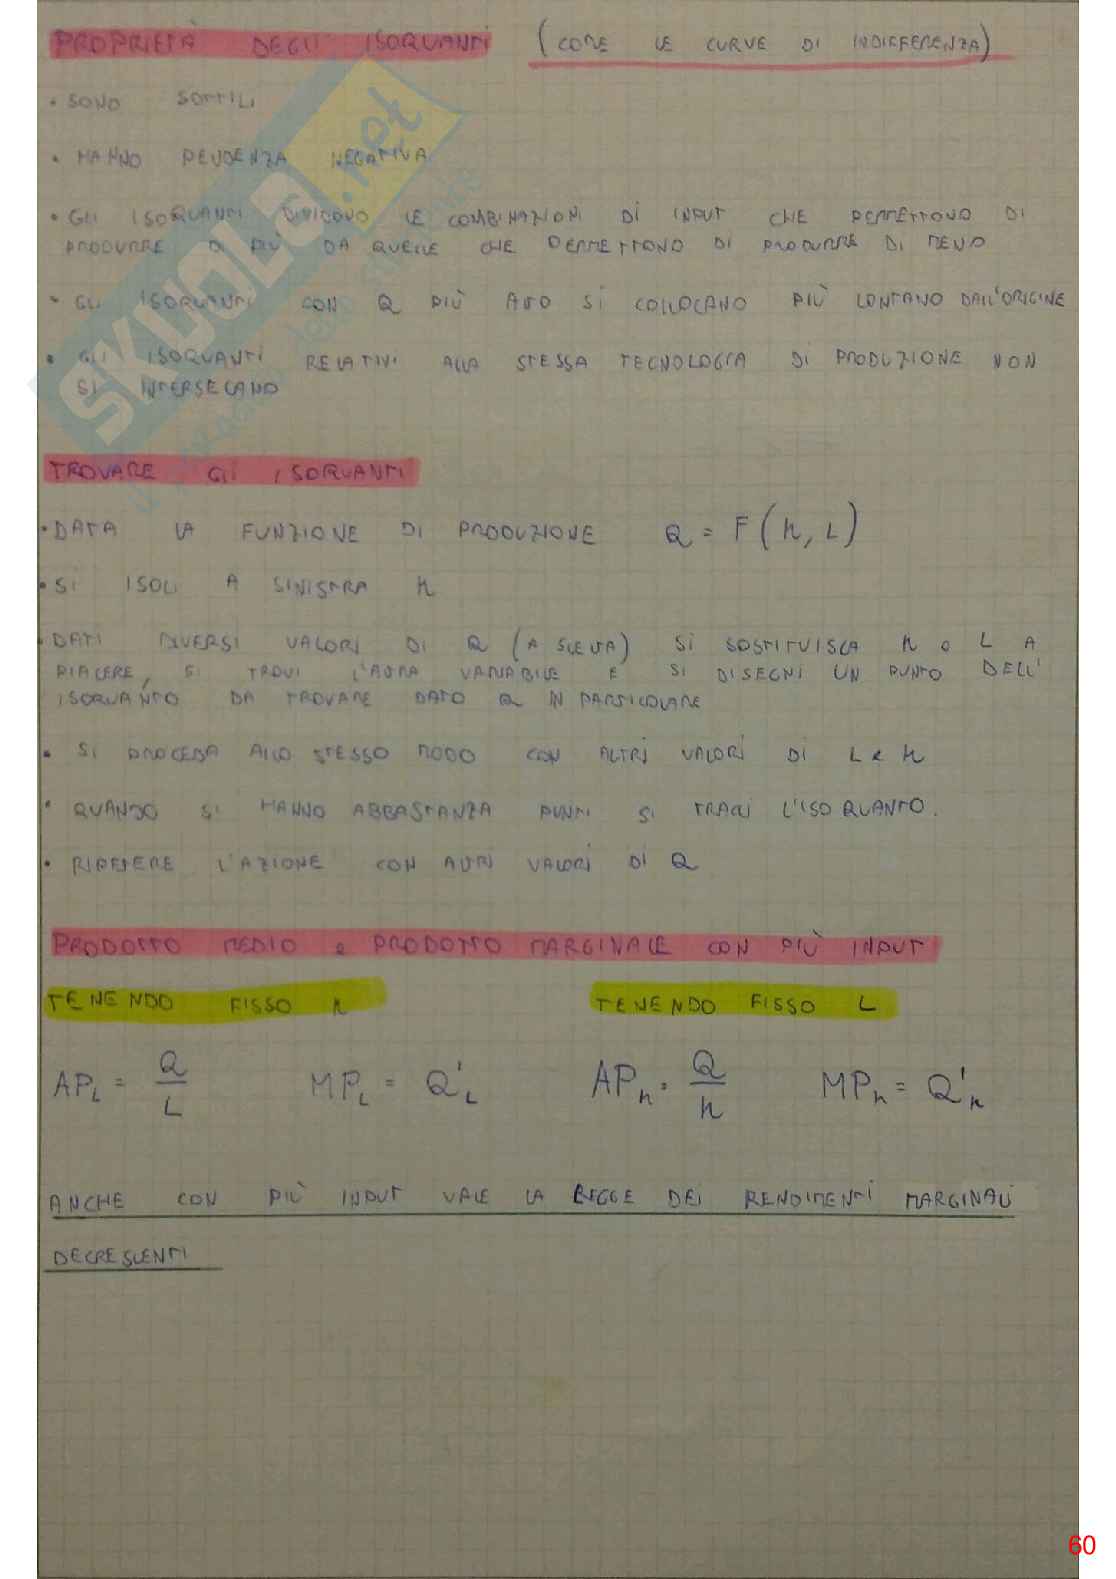 PROPRIETÀ DEGLI ISOQUANTI (COME LE CURVE DI INDIFFERENZA)
• SONO SOTTILI
• HANNO PENDENZA NEGATIVA
• GLI ISOQUANTI DIVIDONO LE COMBINAZIONI DI INPUT CHE PERMETTONO DI
PRODURRE DI PIÙ DA QUELLE CHE PERMETTONO DI PRODURRE DI MENO
• GLI ISOQUANTI CON Q PIÙ ALTO SI COLLOCANO PIÙ LONTANO DALL'ORIGINE
• GLI ISOQUANTI RELATIVI ALLA STESSA TECNOLOGIA DI PRODUZIONE NON
SI INTERSECANO
SKUOLA.net
TROVARE GLI ISOQUANTI
• DATA LA FUNZIONE DI PRODUZIONE Q = F(K, L)
• SI ISOLI A SINISTRA K
• DATI DIVERSI VALORI DI Q (A SCELTA) SI SOSTITUISCA K O L A
PIACERE, SI TROVI L'ALTRA VARIABILE E SI DISEGNI UN PUNTO DELL'
ISOQUANTO DA TROVARE DATO Q IN PARTICOLARE
• SI PROCEDA ALLO STESSO MODO CON ALTRI VALORI DI L E K
• QUANDO SI HANNO ABBASTANZA PUNTI SI TRACCI L'ISOQUANTO.
• RIPETERE L'AZIONE CON ALTRI VALORI DI Q
PRODOTTO MEDIO e PRODOTTO MARGINALE CON PIÙ INPUT
TENENDO FISSO K TENENDO FISSO L
AP_L = Q/L MP_L = Q'_L AP_K = Q/K MP_K = Q'_K
ANCHE CON PIÙ INPUT VALE LA LEGGE DEI RENDIMENTI MARGINALI
DECRESCENTI
60